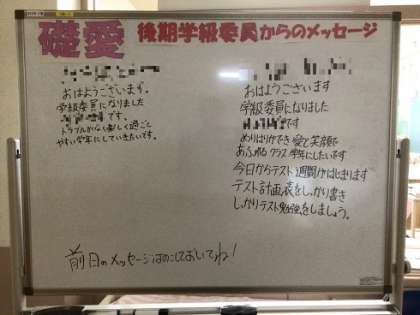 礎愛 後期学級委員からのメッセージ
おはようございます。
学級委員になりました
です。
トラブルがない楽しく過ごし
やすい学年にしていきたいです。
おはようございます
学級委員になりました
です
めりはりができ愛と笑顔で
あふれるクラス、学年にしたいです
今日からテスト週間がはじまります
テスト計画表をしっかり書き
しっかりテスト勉強をしましょう。
前日のメッセージはのこしておいてね!